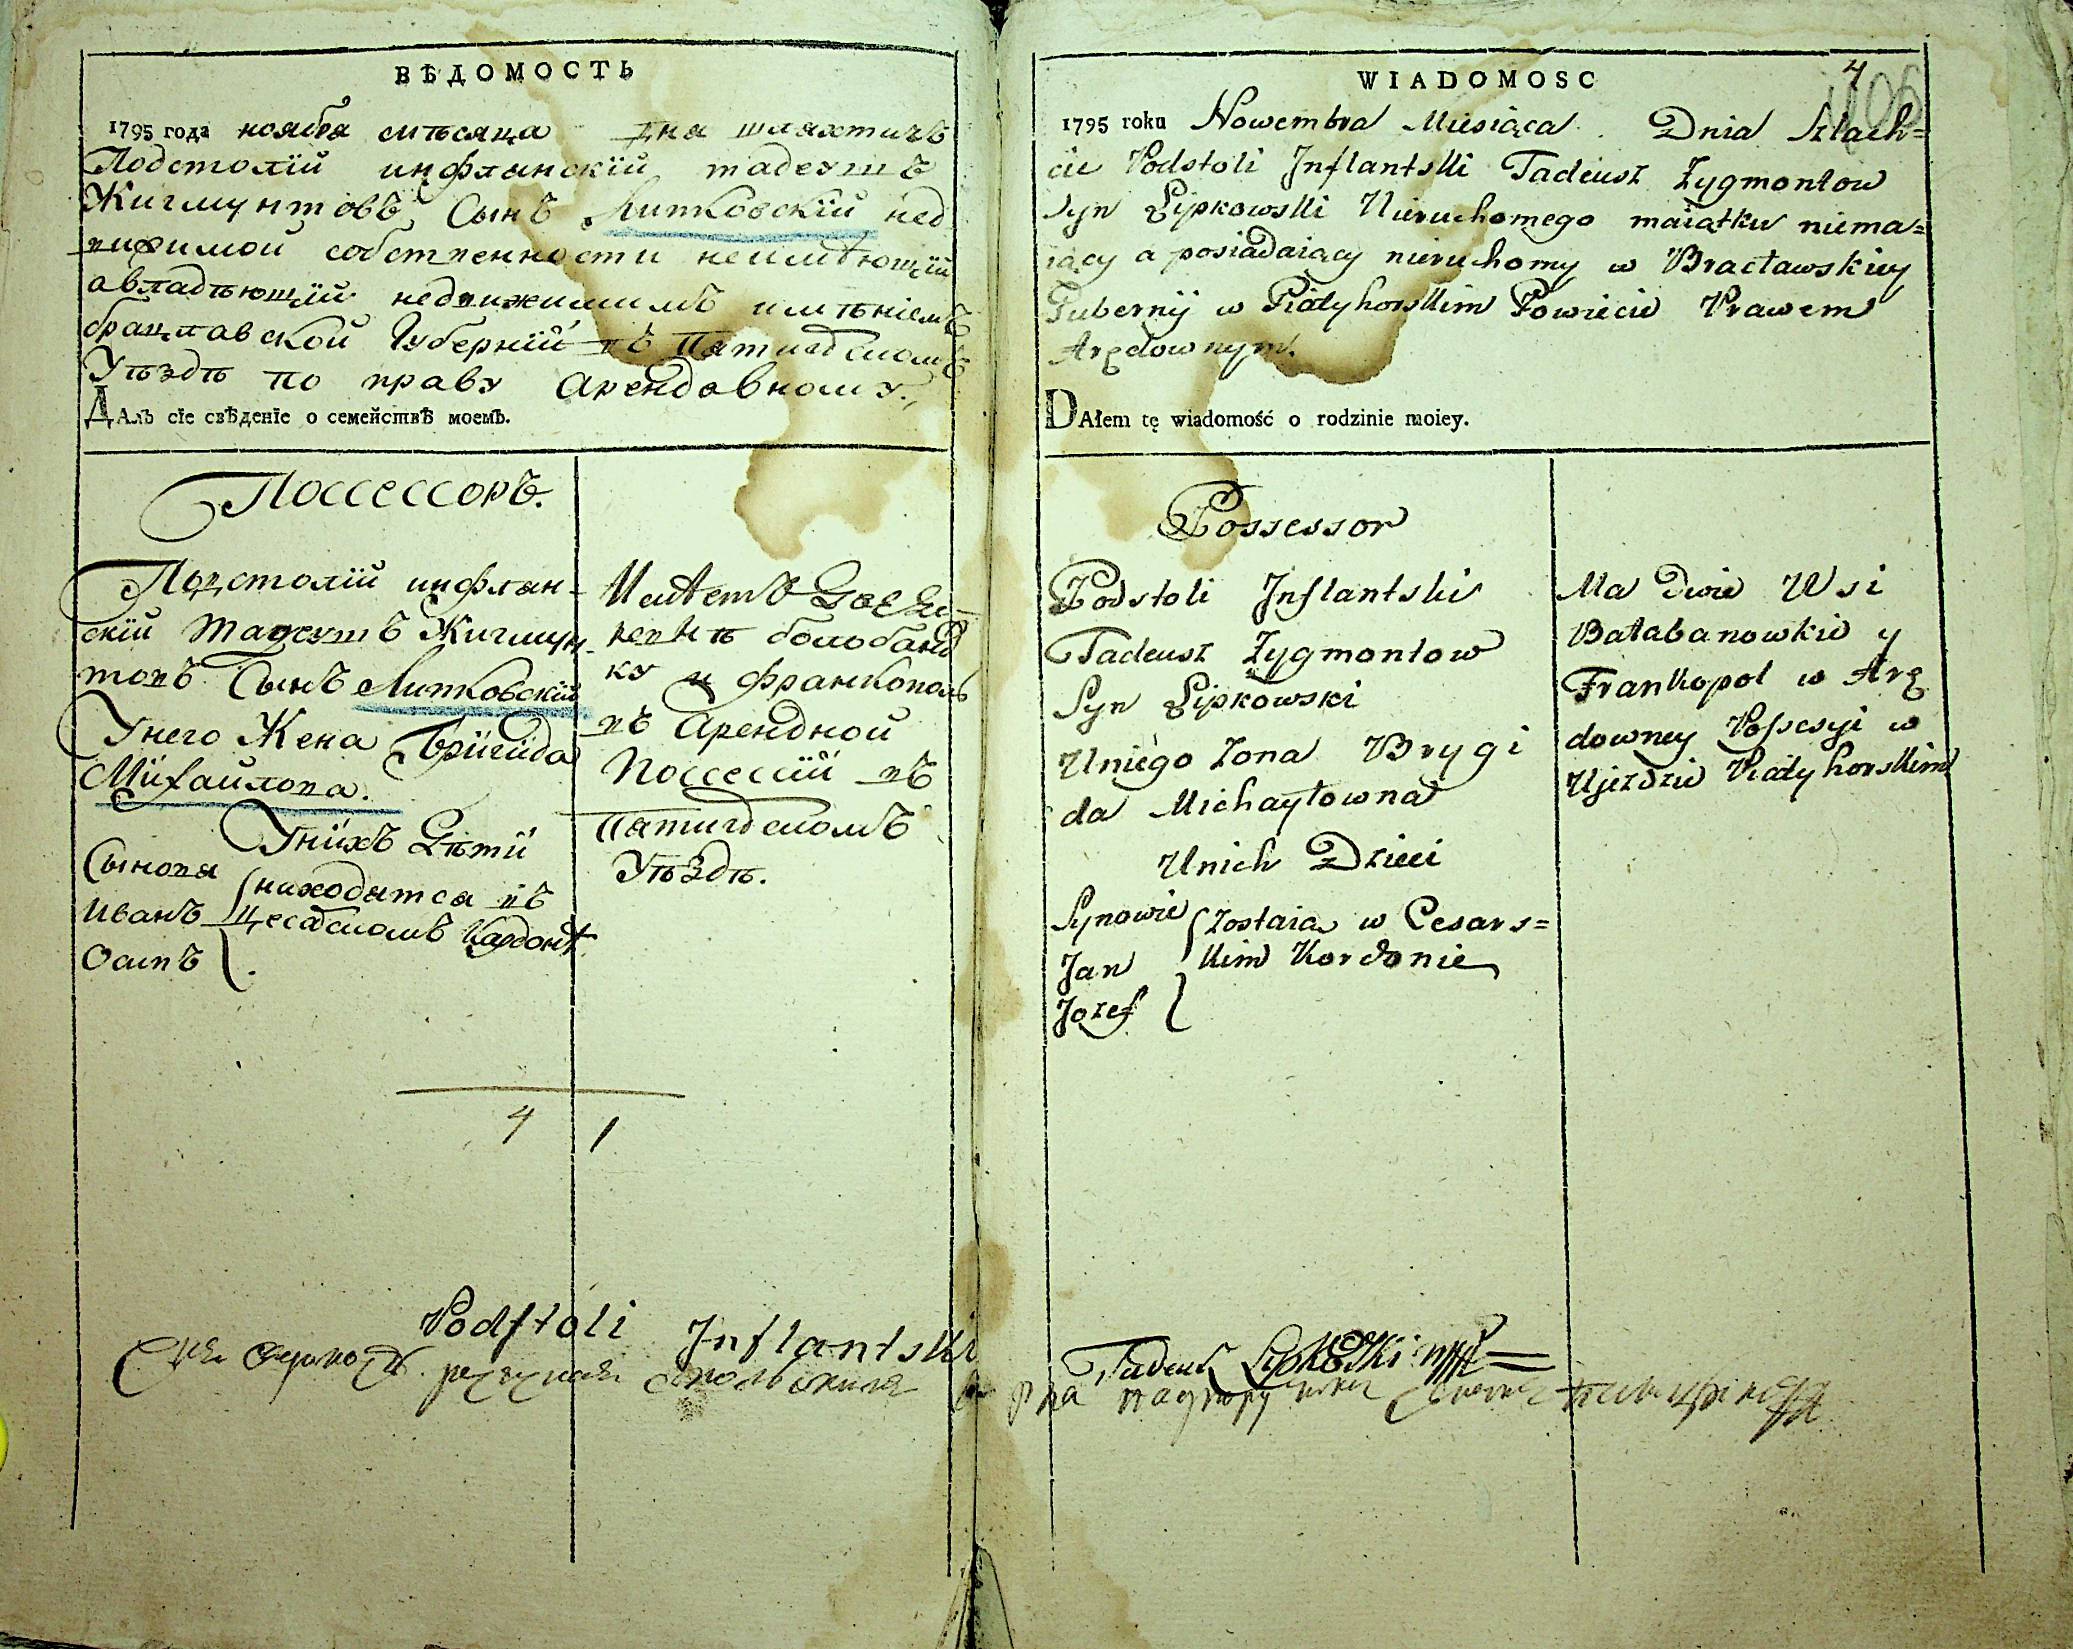 ВѢДОМОСТЬ
1795 года ноября мѣсяца дна шляхтичъ
Подстолїй инфлянскїй тадеушъ
Жигмунтовъ Сынъ Липковскїй нед
вижимой собственности неимѣющїй
авладѣющїй недвижимимъ имѣнїемъ
брацлавской Губернїй въ Пятигорскомъ
Уѣздѣ по праву Арендовному.
ДАлъ сїе свѣденїе о семействѣ моемъ.
Поссессоръ.
Подстолїй инфлян-
скїй Тадеушъ Жигмун-
товъ Сынъ Липковскїй
Унего Жена Бригида
Михайлова.
Унихъ Дѣти
Сынова
Иванъ
Осипъ
находятся въ
цесарскомъ Кордонѣ.
Имѣетъ Двѣ Де-
ревнѣ болобанов
ку и Франкополь
въ Арендной
Поссессїй въ
Пятигорскомъ
Уѣздѣ.
4 1
Podstoli Inflantski
WIADOMOSC
4
1795 roku Nowembra Miesiąca Dnia Szlach=
cic Podstoli Inflantski Tadeusz Zygmontow
Syn Lipkowski Nieruchomego maiątku niema=
iący a posiadaiący nieruchomy w Bracławskiey
Gubernij w Piatyhorskim Powiecie Prawem
Arędownym.
DAłem tę wiadomość o rodzinie moiey.
Possessor
Podstoli Inflantski
Tadeusz Zygmontow
Syn Lipkowski
Uniego Zona Brygi
da Michayłowna
Unich Dzieci
Synowie
Jan
Jozef
zostaią w Cesars=
kim Kordonie
Ma Dwie Wsi
Bałabanowkie y
Frankopol w Arę
downey Possesyi w
Ujezdzie Piatyhorskim
Tadeusz Lipkowski